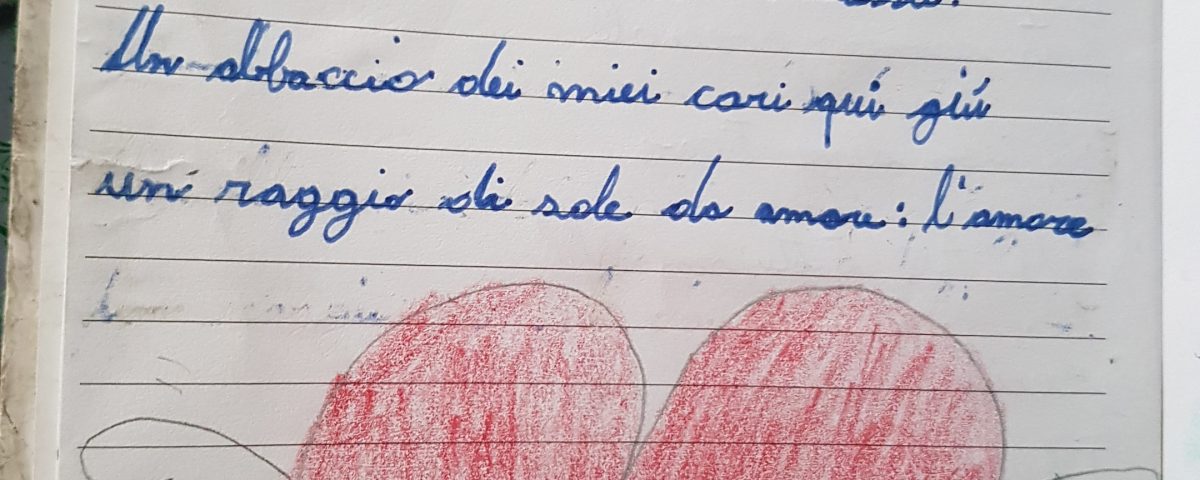 Un abbaccio dei miei cari quí giú
un raggio di sole da amare: l'amore